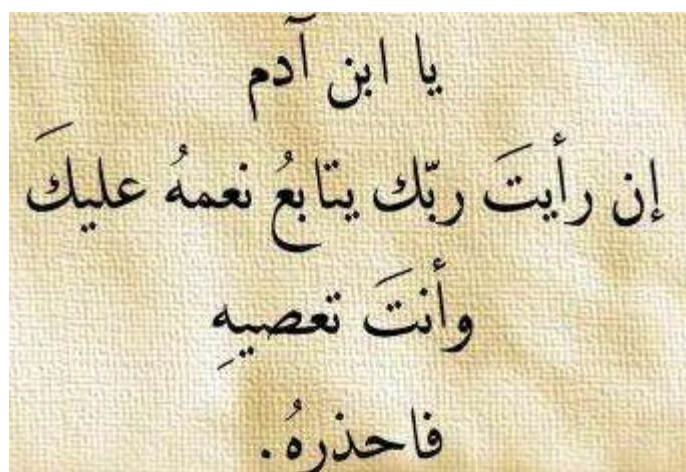 يا ابن آدم
إن رأيتَ ربّك يتابعُ نعمهُ عليكَ
وأنتَ تعصيهِ
فاحذرهُ.